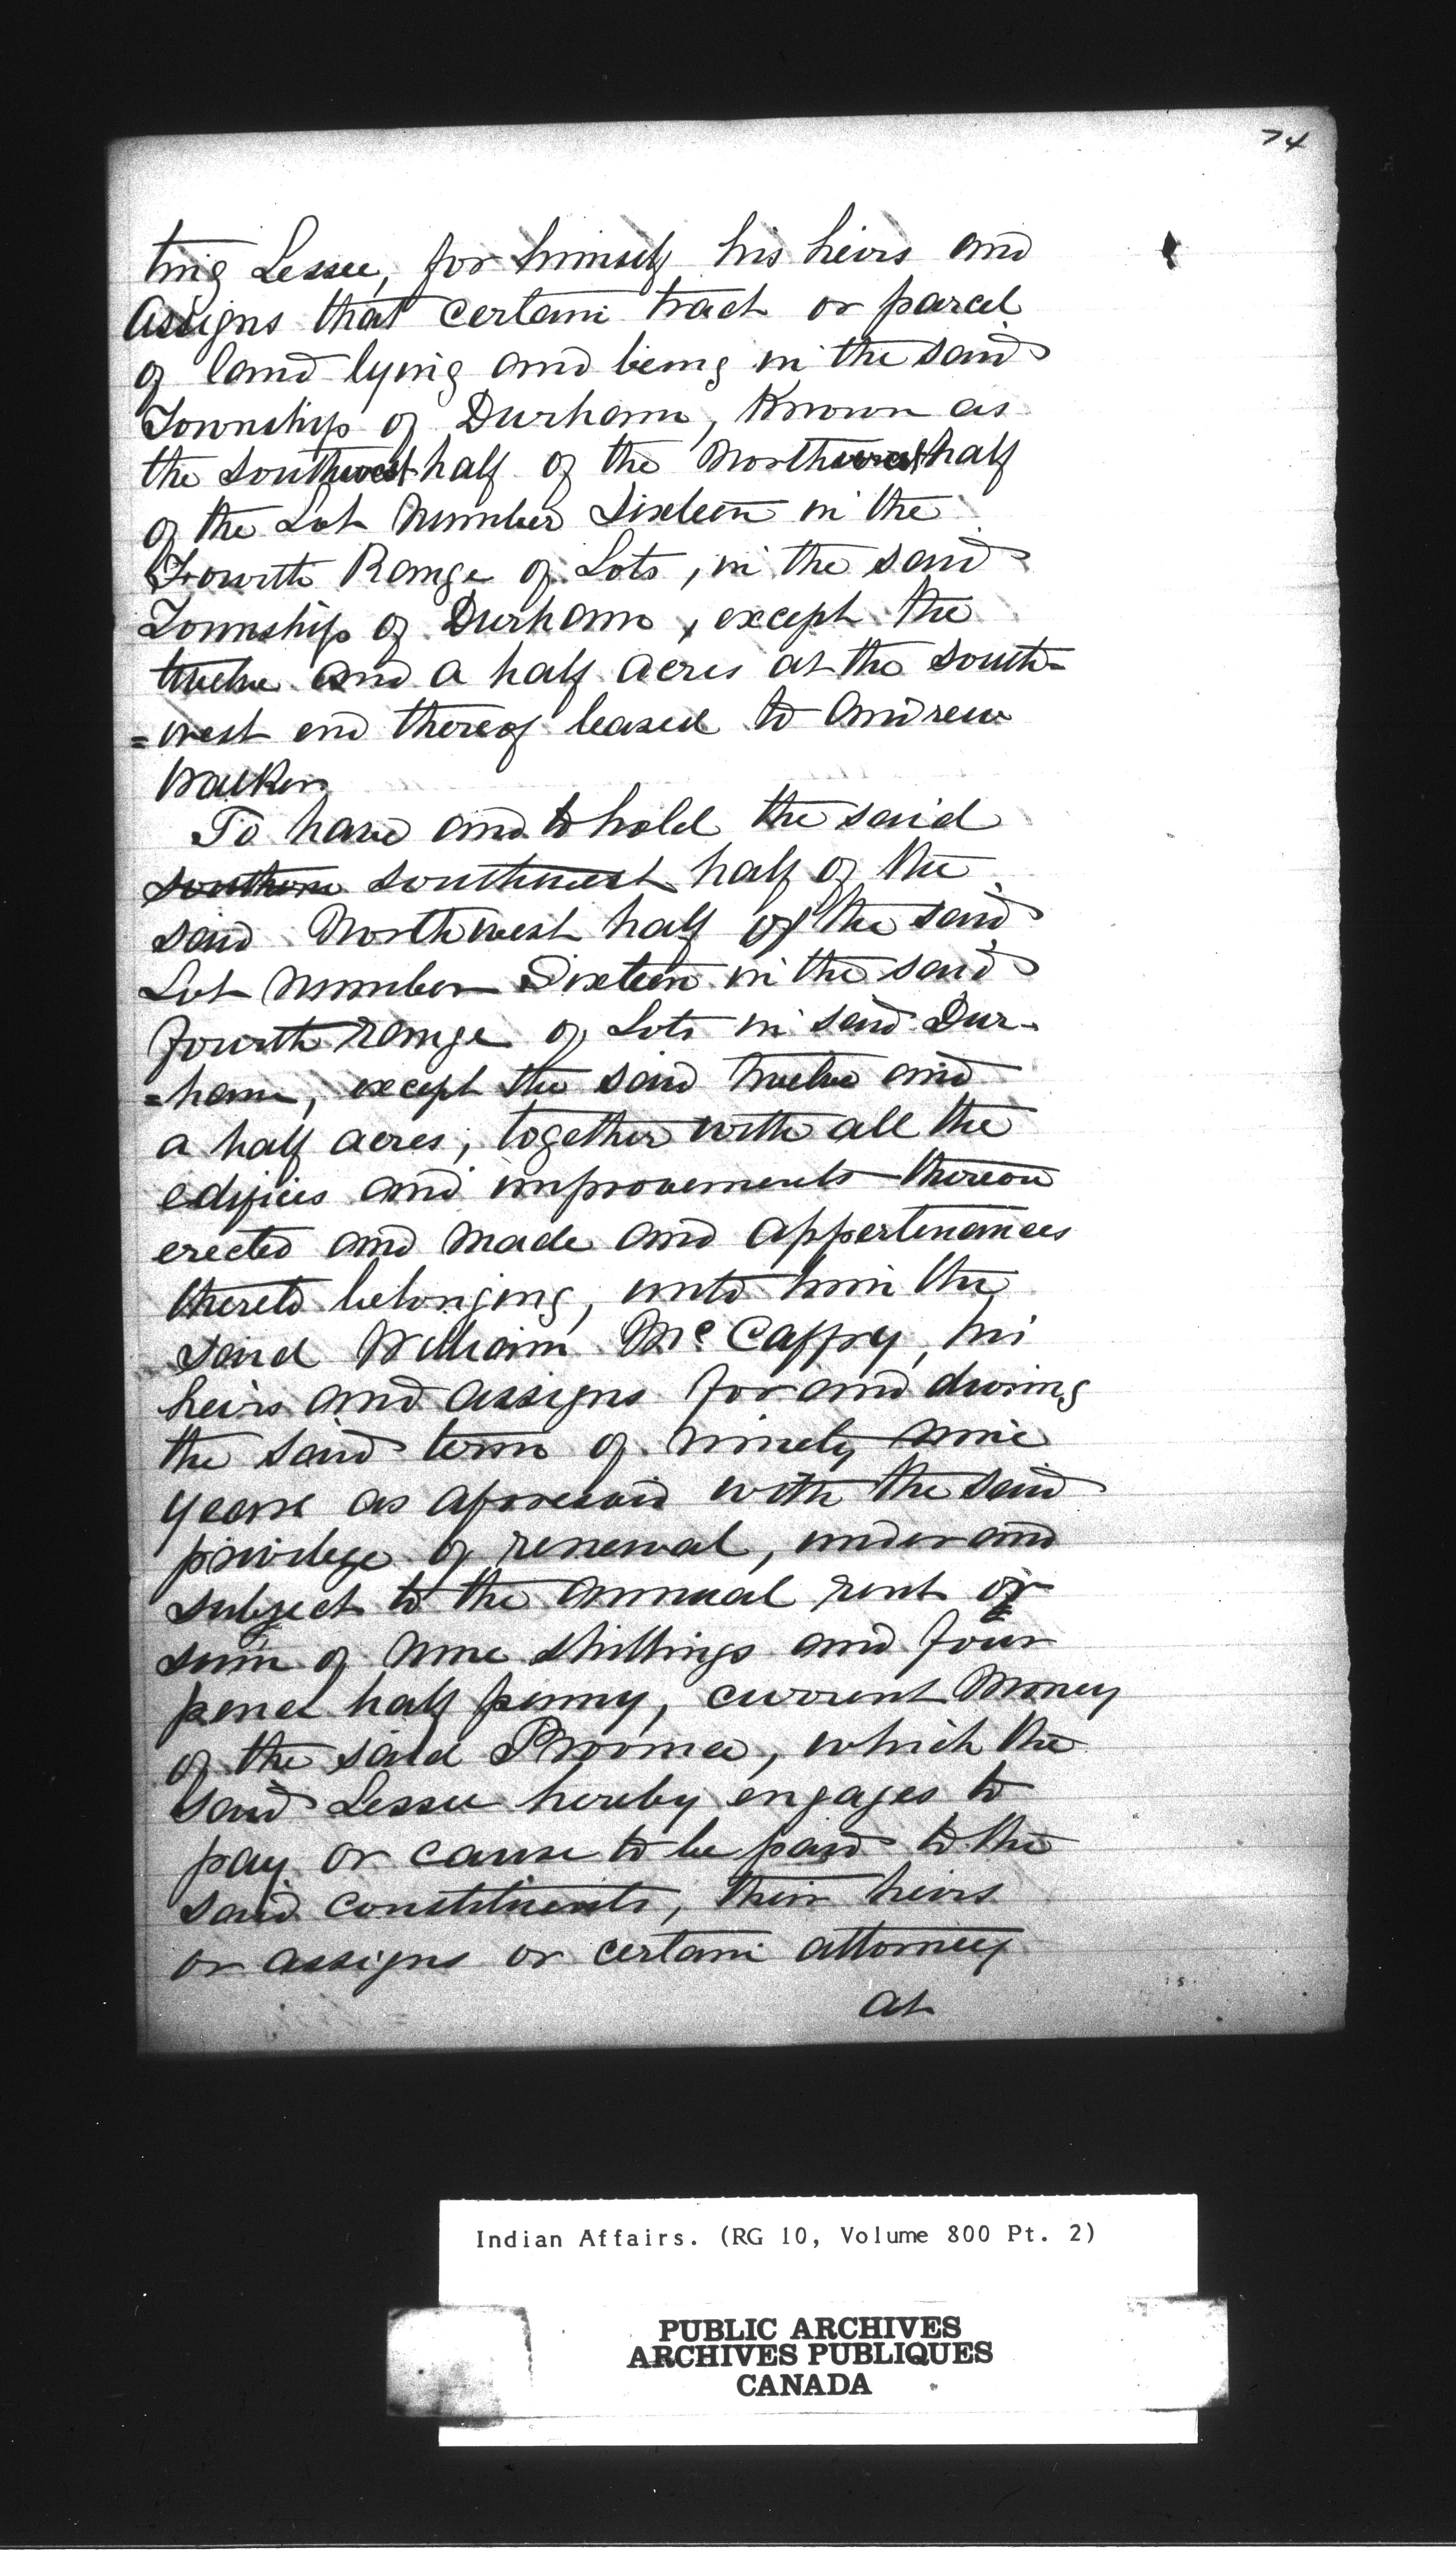 74
ting Lessee, for himself his heirs and
Assigns that certain tract or parcel
of land lying and being in the said
Township of Durham, Known as
the southwest half of the Northwest half
of the Lot Number Sixteen in the
Fourth Range of Lots, in the said
Township of Durham, except the
twelve and a half acres at the south-
=west end thereof leased to Andrew
Walker.
To have and to hold the said
southern southwest half of the
said Northwest half of the said
Lot Number Sixteen in the said
fourth range of Lots in said Dur-
=ham, except the said twelve and
a half acres, together with all the
edifices and improvements thereon
erected and made and appertenances
thereto belonging, unto him the
said William McCaffry, his
heirs and assigns for and during
the said term of ninety nine
years as aforesaid with the said
privilege of renewal, under and
subject to the annual rent or
sum of nine shillings and four
pence half penny, current Money
of the said Province, which the
said Lessee hereby engages to
pay or cause to be paid to the
said constituents, their heirs
or assigns or certain attorney
at
Indian Affairs. (RG 10, Volume 800 Pt. 2)
PUBLIC ARCHIVES
ARCHIVES PUBLIQUES
CANADA